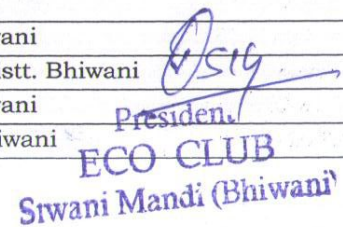 ani
stt. Bhiwani
ani
iwani
President
ECO CLUB
Siwani Mandi (Bhiwani)